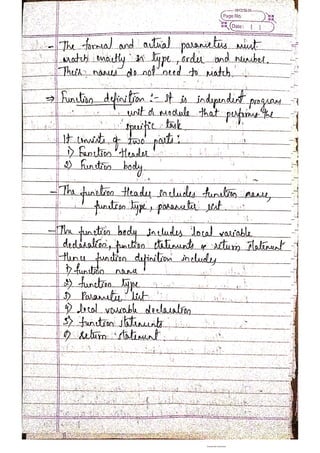 Page No.
Date:
- The formal and actual parameters must
match exactly in type, order and number.
Their names do not need to match.
⇒ Function definition :- It is independent program
unit of module that performs the
specific task
It consists of two parts:
1) Function Header
2) Function body
- The function Header includes function name,
function type, parameter list.
- The function body includes local variable
declaration, function statements & return statement
Hence function definition includes
1) function name
2) function type
3) Parameter list
4) local variable declaration
5) function statements
6) return statement.